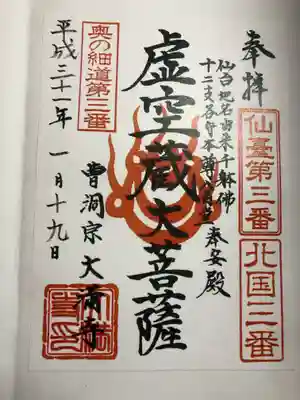 奉拝
仙臺第三番
北国三番
仙台地名由来千躰佛
十二支各守本尊
奉安殿
虚空蔵大菩薩
奥の細道第三番
曹洞宗 大満寺
平成三十一年 一月十九日